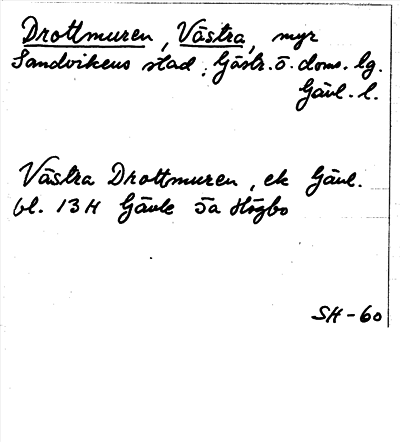 Drottmuren, Västra, myr
Sandvikens stad, Gästr. ö. doms. lg.
Gävl. l.
Västra Drottmuren, ek Gävl.
bl. 13H Gävle 5a Högbo
SH-60